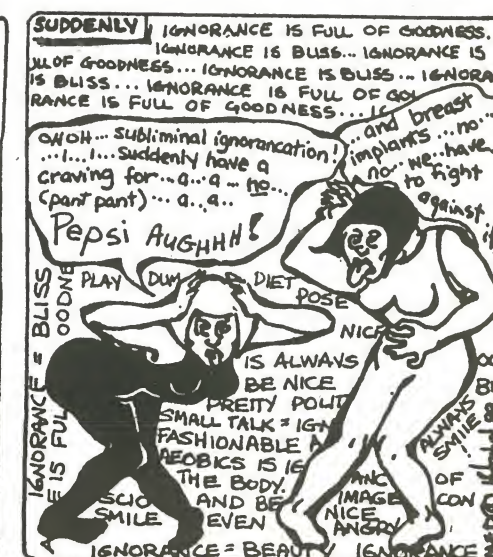 SUDDENLY
IGNORANCE IS FULL OF GOODNESS.
IGNORANCE IS BLISS... IGNORANCE IS
OF GOODNESS... IGNORANCE IS BLISS... IGNORA
IS BLISS... IGNORANCE IS FULL OF GO
RANCE IS FULL OF GOODNESS... IG
OHOH... subliminal ignorancation!
...I...I... Suddenly have a
craving for...a..a... no...
(pant pant)... a..a..
Pepsi AUGHHH!
..and breast
implants...no...
no..we..have
to fight
against
it
PLAY DUM
DIET
POSE
NICE
IS ALWAYS
BE NICE
PRETTY POLIT
SMALL TALK = IGN
FASHIONABLE
AEOBICS IS IG
THE BODY
AND BE
EVEN
SCIO
SMILE
ANC
IMAGE
NICE
ANGRY
OF
CON
ALWAYS
SMILE
!
IGNORANCE = BLISS
E IS FUL
OODNE
IGNORANCE = BEAUTY IGNORANCE